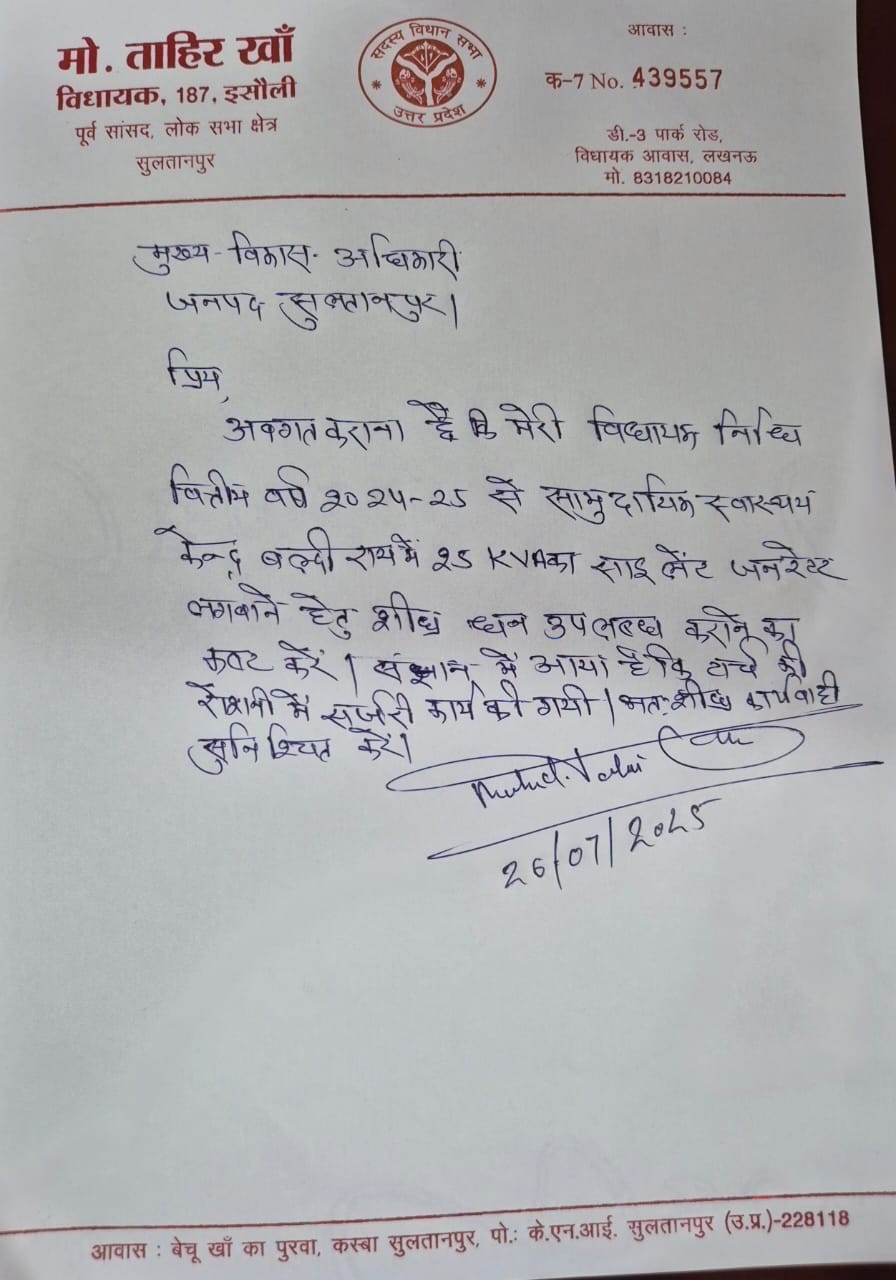 मो. ताहिर खाँ
विधायक, 187, इसौली
पूर्व सांसद, लोक सभा क्षेत्र
सुलतानपुर
सदस्य विधान सभा
उत्तर प्रदेश
आवास :
क-7 No. 439557
डी.-3 पार्क रोड,
विधायक आवास, लखनऊ
मो. 8318210084
मुख्य-विकास-अधिकारी
जनपद सुलतानपुर।
प्रिय,
अवगत कराना है कि मेरी विधायक निधि
वित्तीय वर्ष 2024-25 से सामुदायिक स्वास्थ्य
केन्द्र बल्दी राय में 25 KVA का साइलेंट जनरेटर
लगवाने हेतु शीघ्र धन उपलब्ध कराने का
कष्ट करें। संज्ञान में आया है कि टार्च की
रोशनी में सर्जरी कार्य की गयी। अतः शीघ्र कार्यवाही
सुनिश्चित करें।
26/07/2025
आवास : बेचू खाँ का पुरवा, कस्बा सुलतानपुर, पो.: के.एन.आई. सुलतानपुर (उ.प्र.)-228118